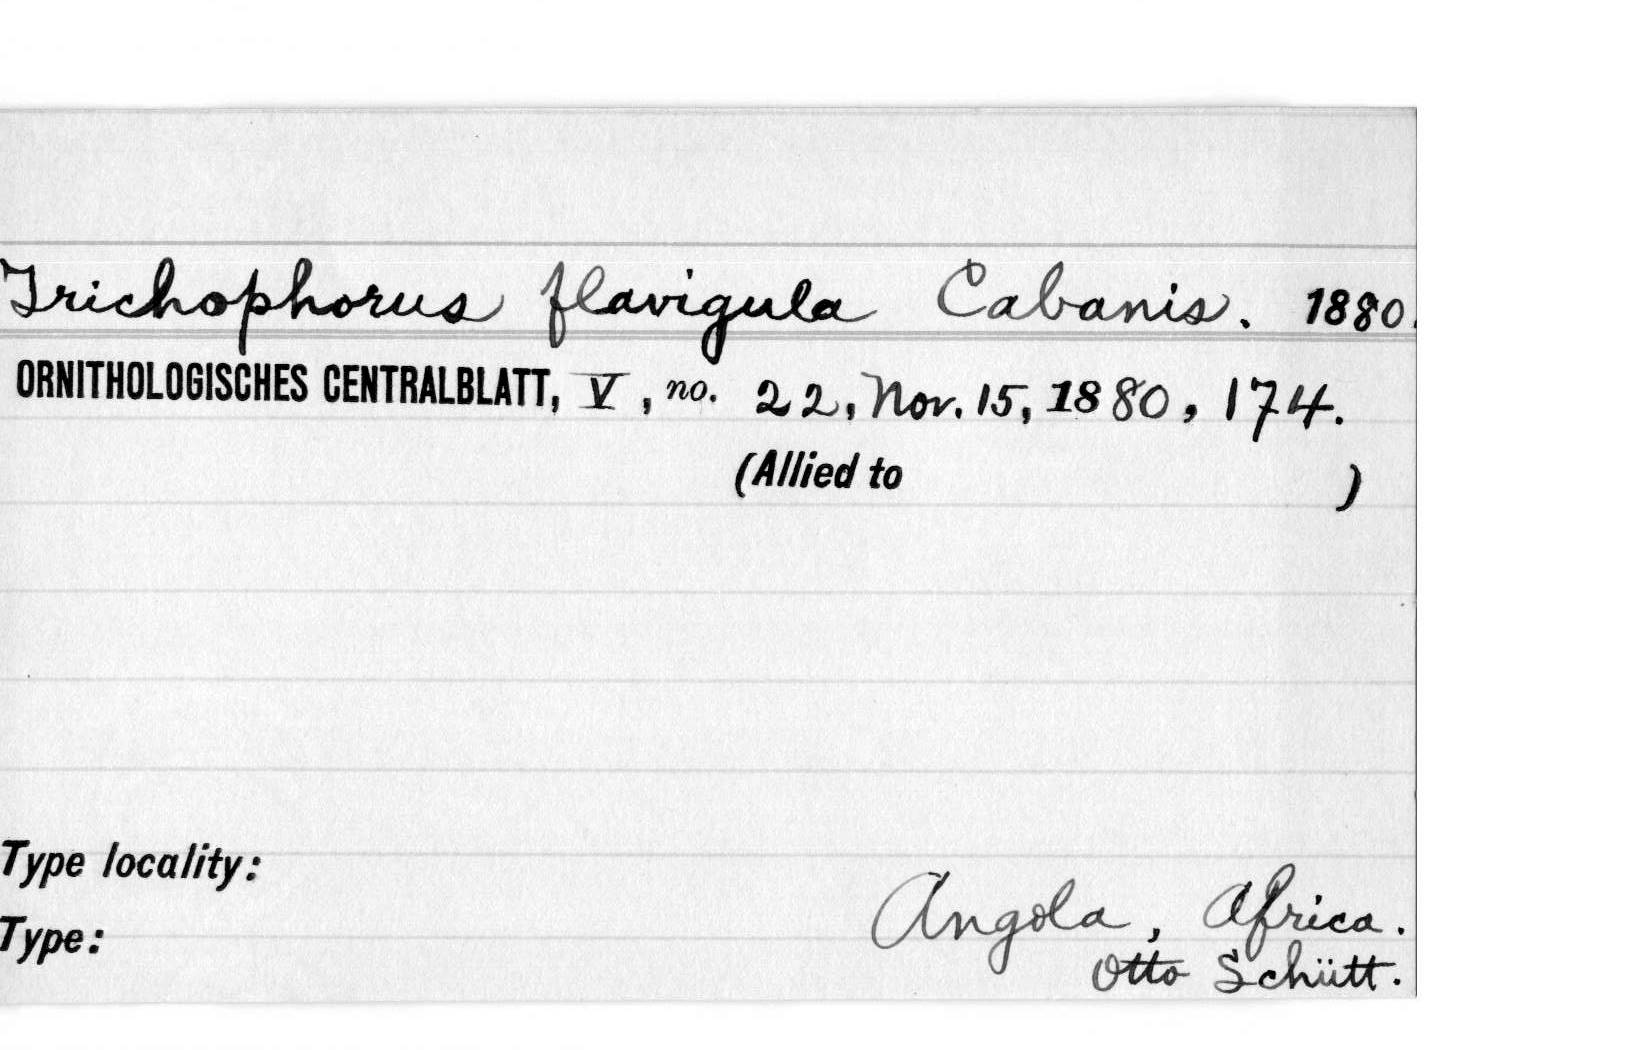 Trichophorus flavigula Cabanis. 1880.
ORNITHOLOGISCHES CENTRALBLATT, V, no. 22, Nov. 15, 1880, 174.
(Allied to )
Type locality:
Angola, Africa.
Type:
Otto Schütt.